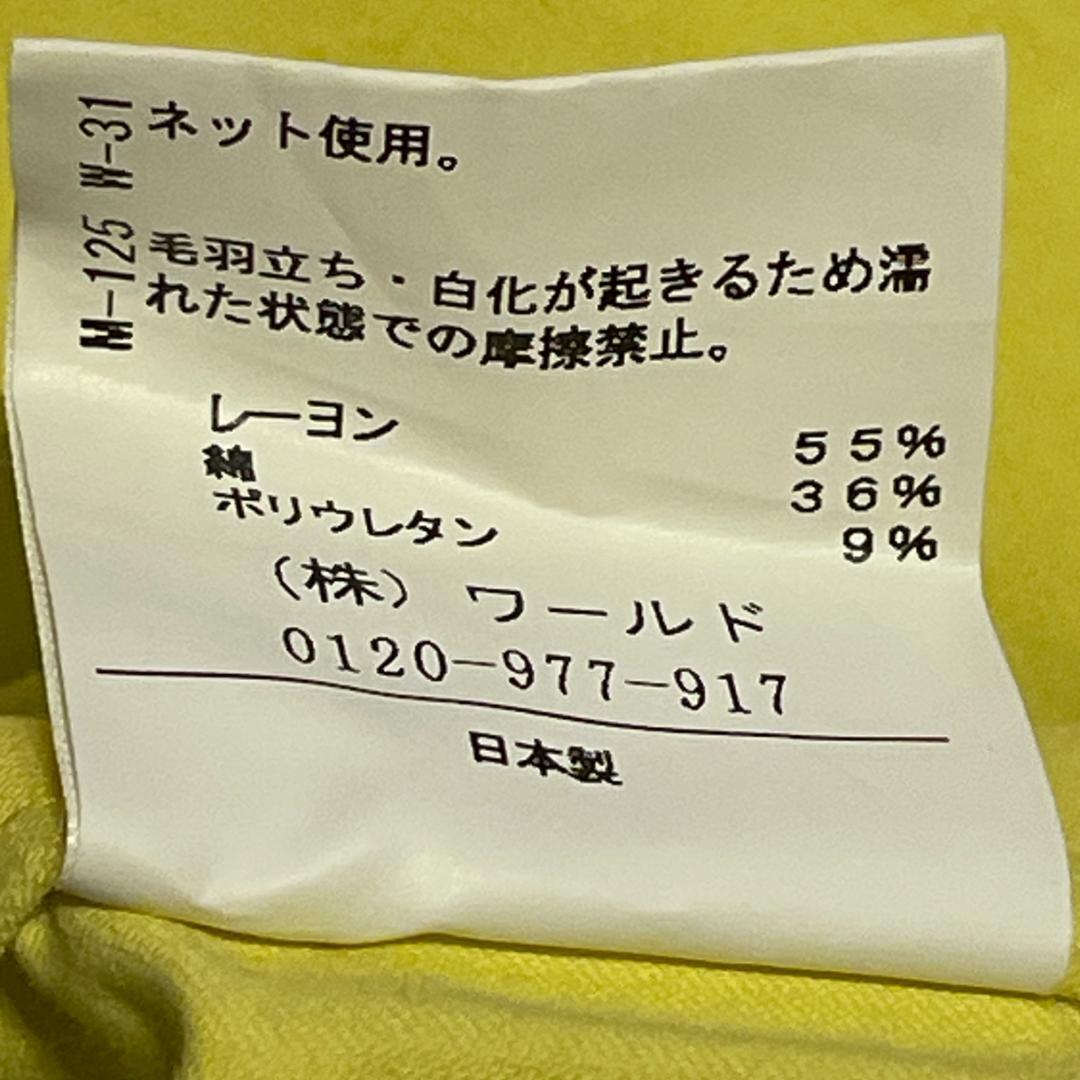 W-31
M-125
ネット使用。
毛羽立ち・白化が起きるため濡
れた状態での摩擦禁止。
レーヨン 55%
綿 36%
ポリウレタン 9%
(株) ワールド
0120-977-917
日本製